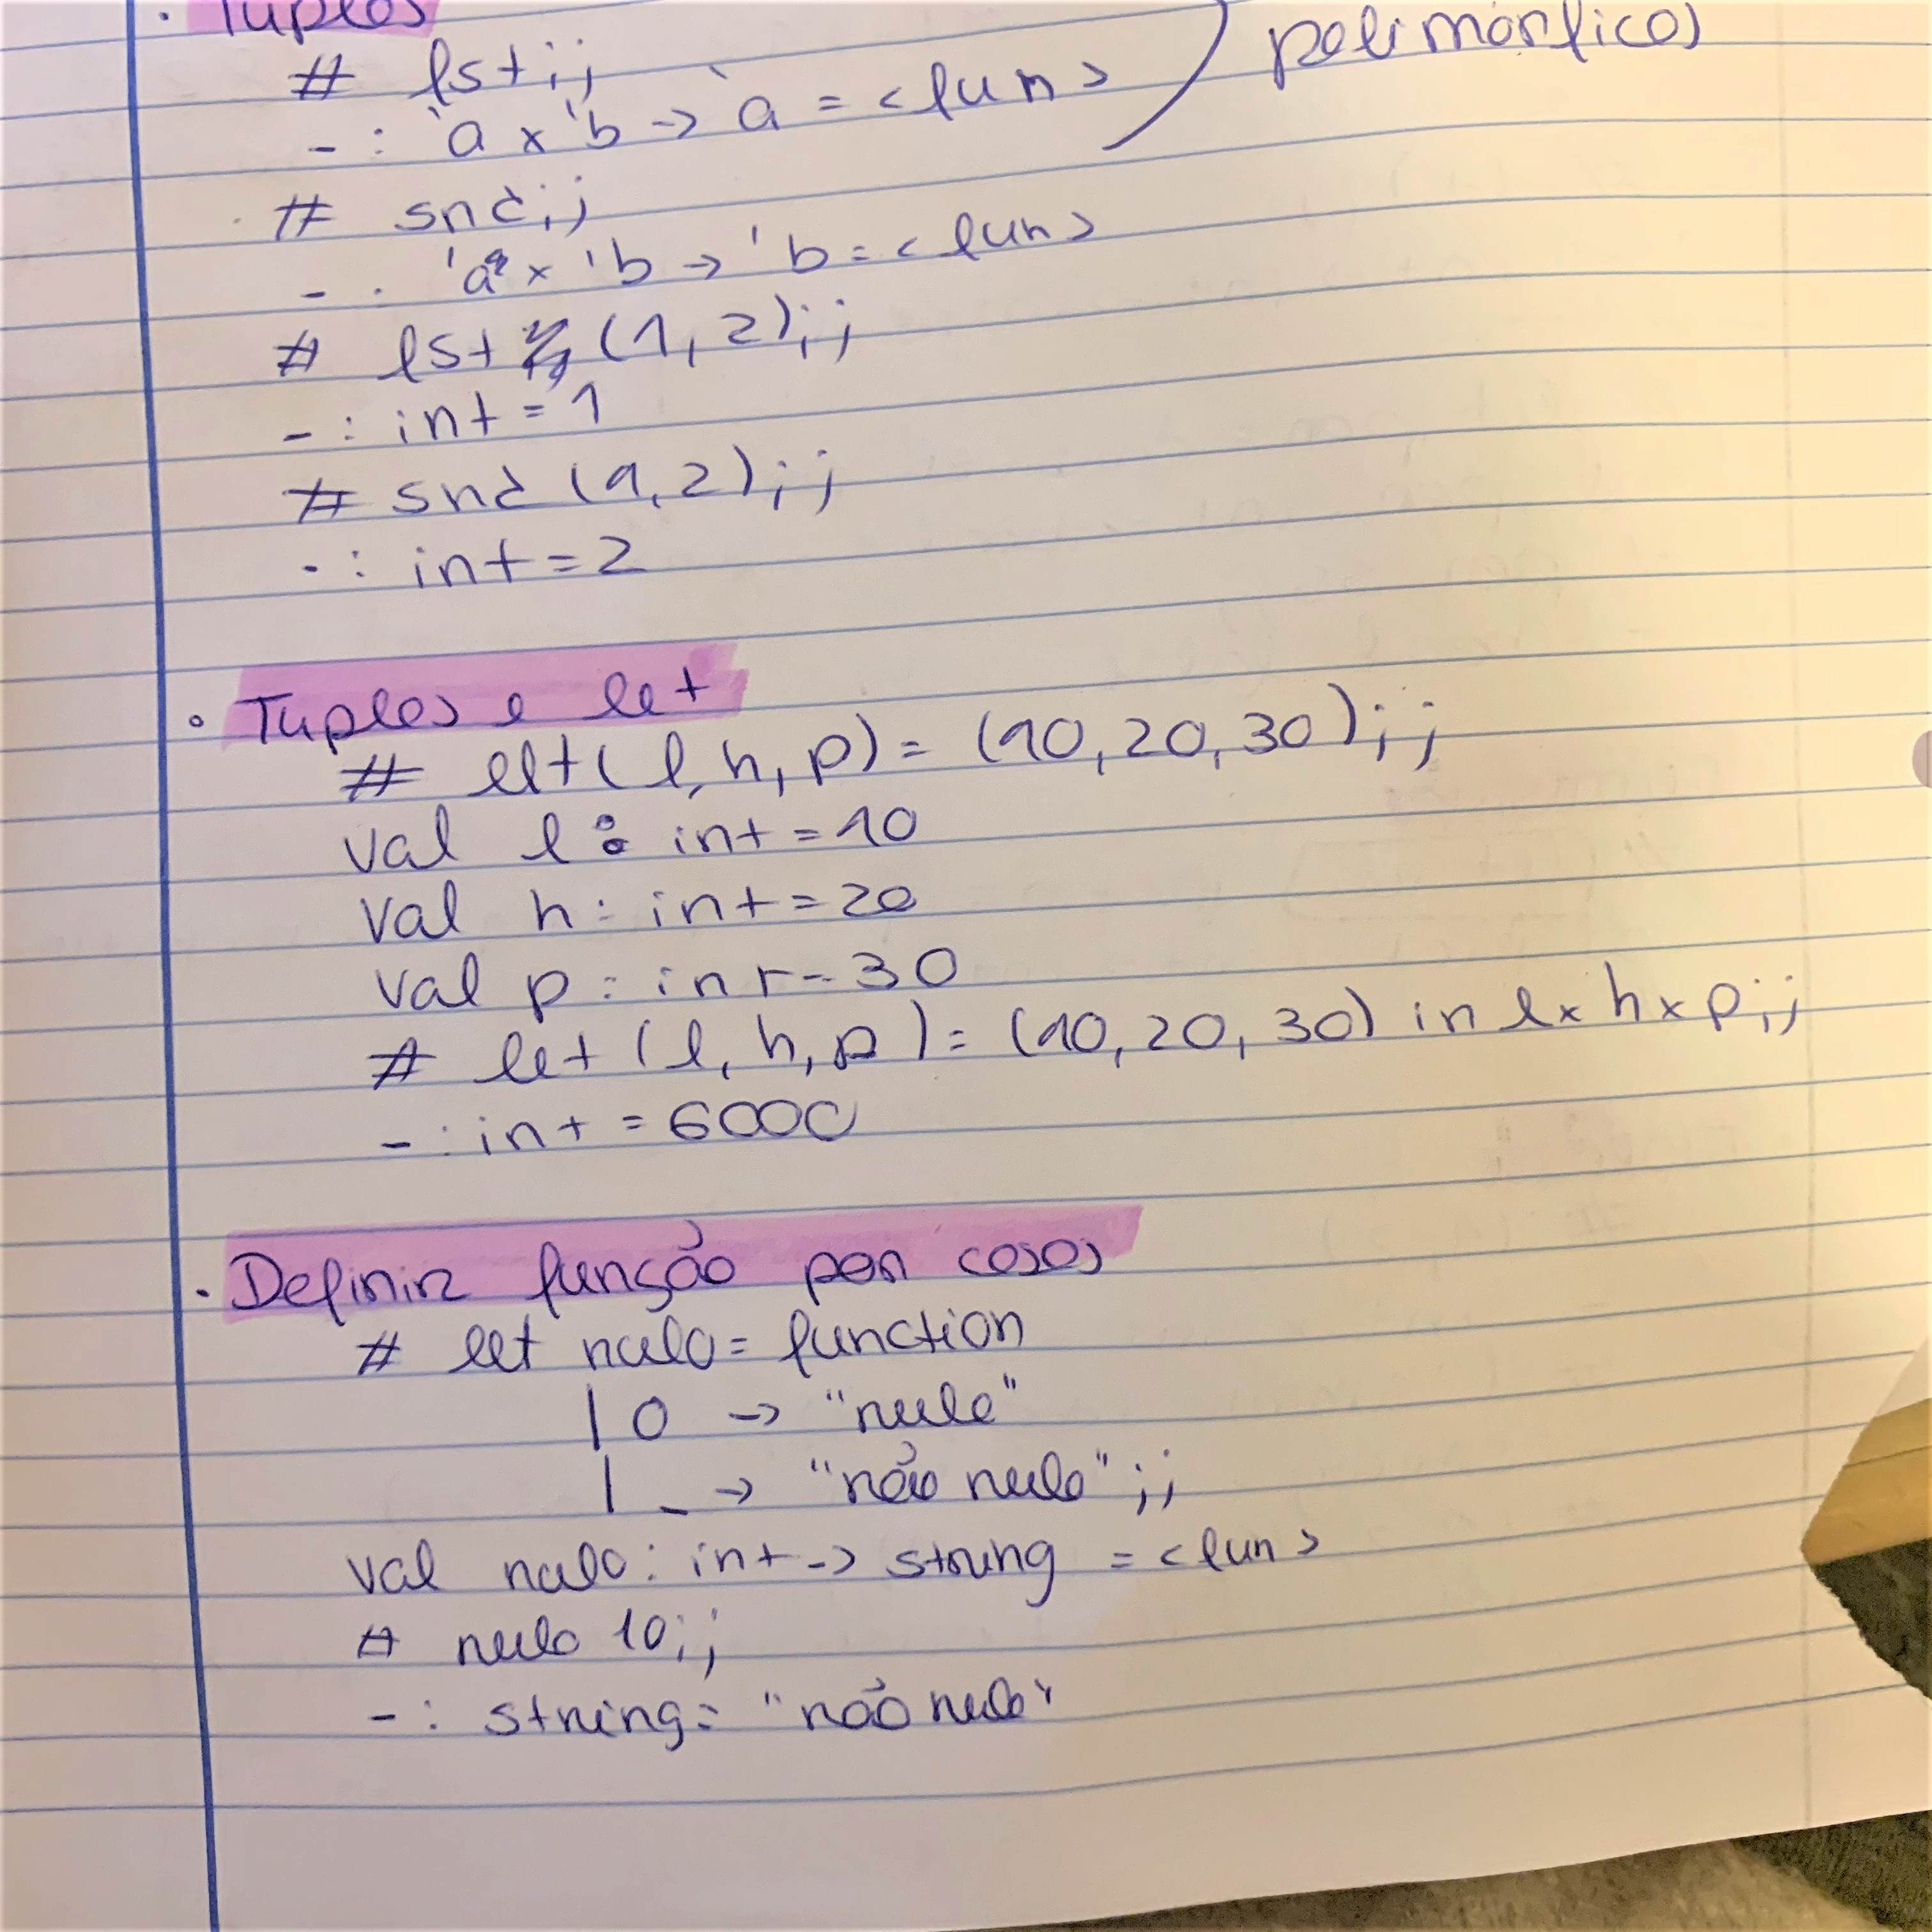 · Tuplos
# fst;;
- : 'a x 'b -> 'a = <fun>
polimórficos
# snd;;
- : 'a x 'b -> 'b = <fun>
# fst (1, 2);;
- : int = 1
# snd (1, 2);;
- : int = 2
· Tuplos e let
# let (l, h, p) = (10, 20, 30);;
val l : int = 10
val h : int = 20
val p : int = 30
# let (l, h, p) = (10, 20, 30) in l x h x p;;
- : int = 6000
· Definir função por casos
# let nulo = function
| 0 -> "nulo"
| _ -> "não nulo";;
val nulo : int -> string = <fun>
# nulo 10;;
- : string = "não nulo"